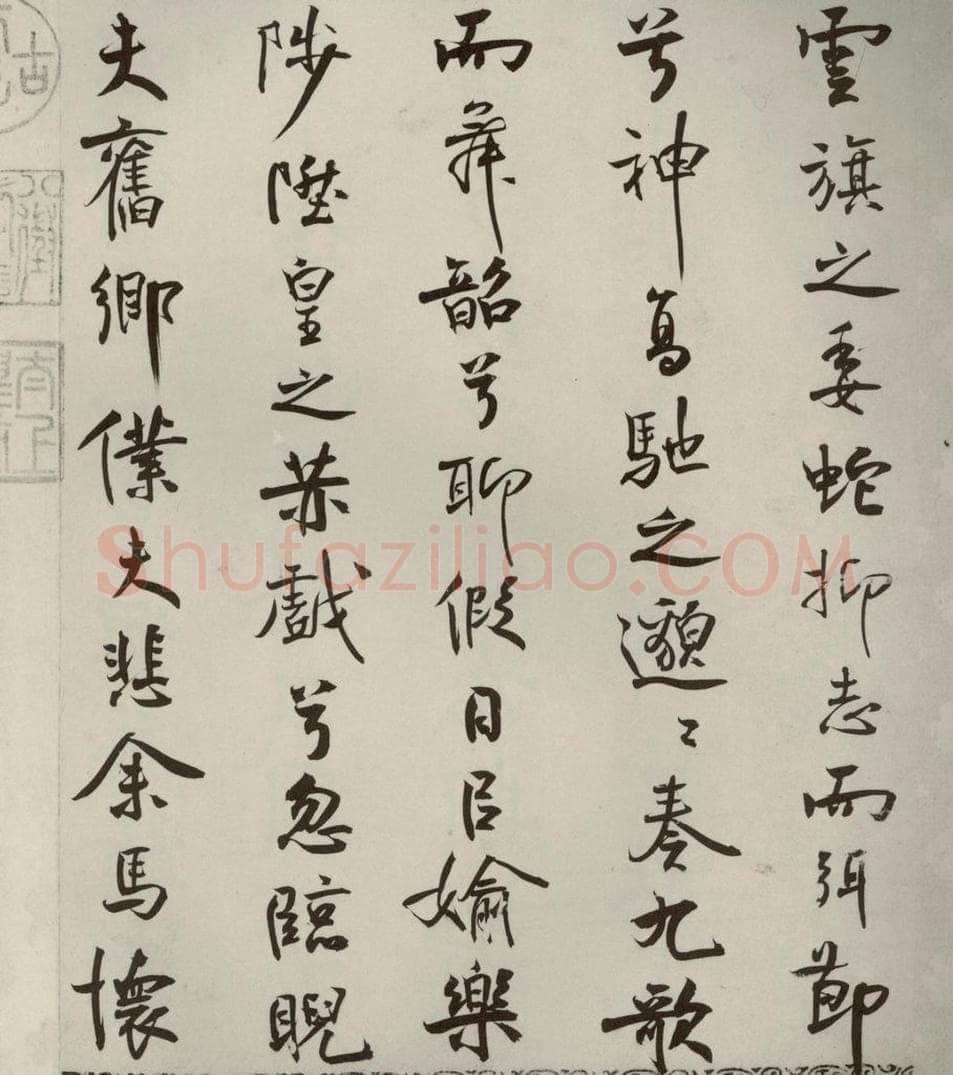 雲旗之委蛇抑志而弭節
兮神高馳之邈〻奏九歌
而舞韶兮聊假日㠯媮樂
陟陞皇之赫戲兮忽臨睨
夫舊鄉僕夫悲余馬懷
Shufaziliao.COM